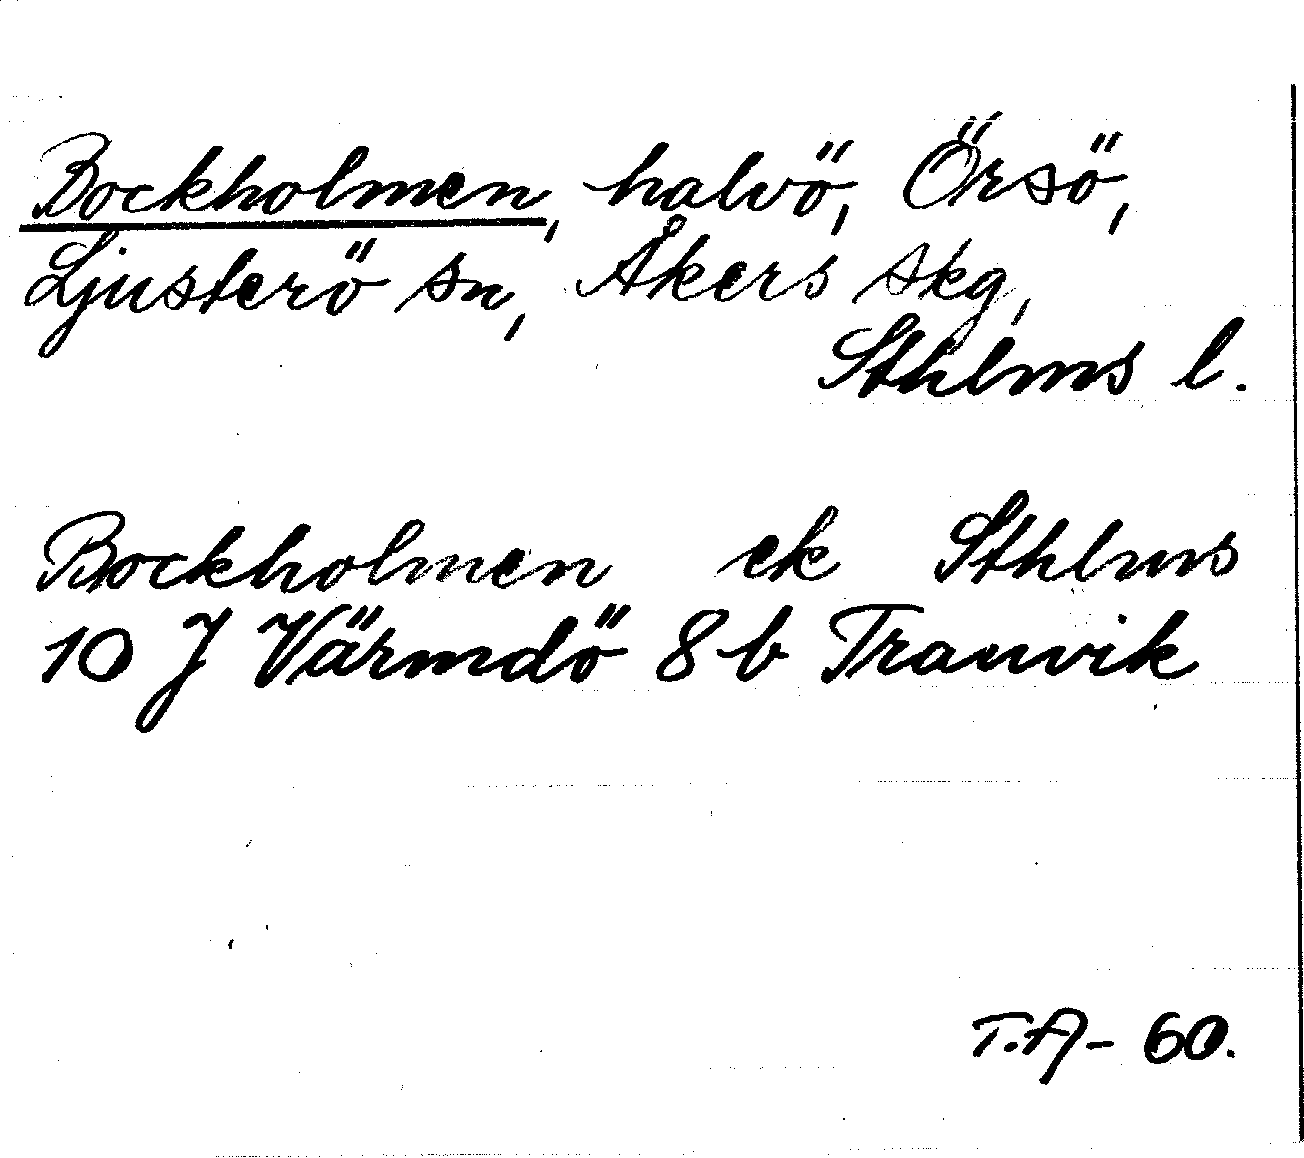 Bockholmen, halvö, Örsö,
Ljusterö sn, Åkers skg,
Sthlms l.
Bockholmen ek Sthlms
10 J Värmdö 8 b Tranvik
T.A- 60.